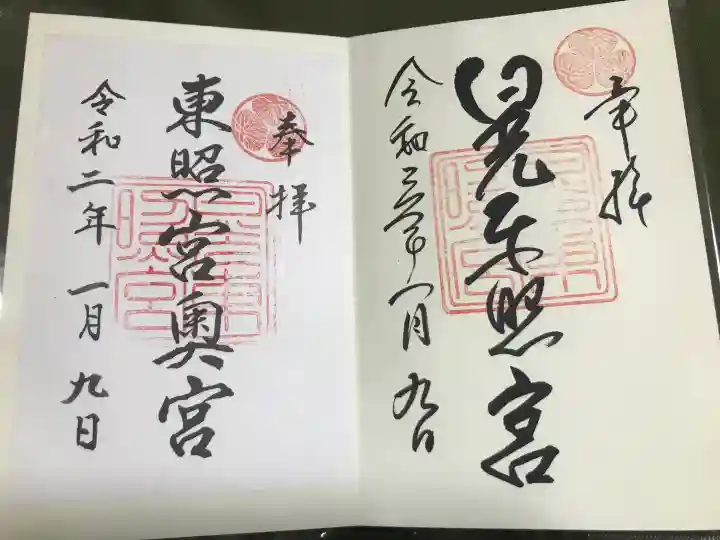 奉拝
日光東照宮
令和二年一月九日
奉拝
東照宮奥宮
令和二年一月九日